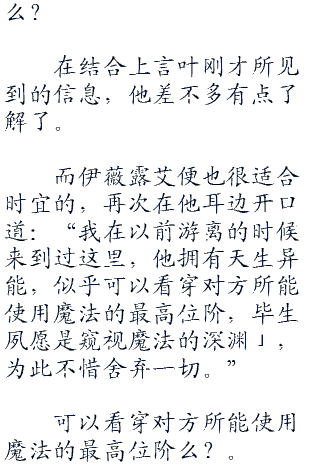 么？
在结合上言叶刚才所见
到的信息，他差不多有点了
解了。
而伊薇露艾便也很适合
时宜的，再次在他耳边开口
道：“我在以前游离的时候
来到过这里，他拥有天生异
能，似乎可以看穿对方所能
使用魔法的最高位阶，毕生
夙愿是窥视魔法的深渊」，
为此不惜舍弃一切。”
可以看穿对方所能使用
魔法的最高位阶么？。